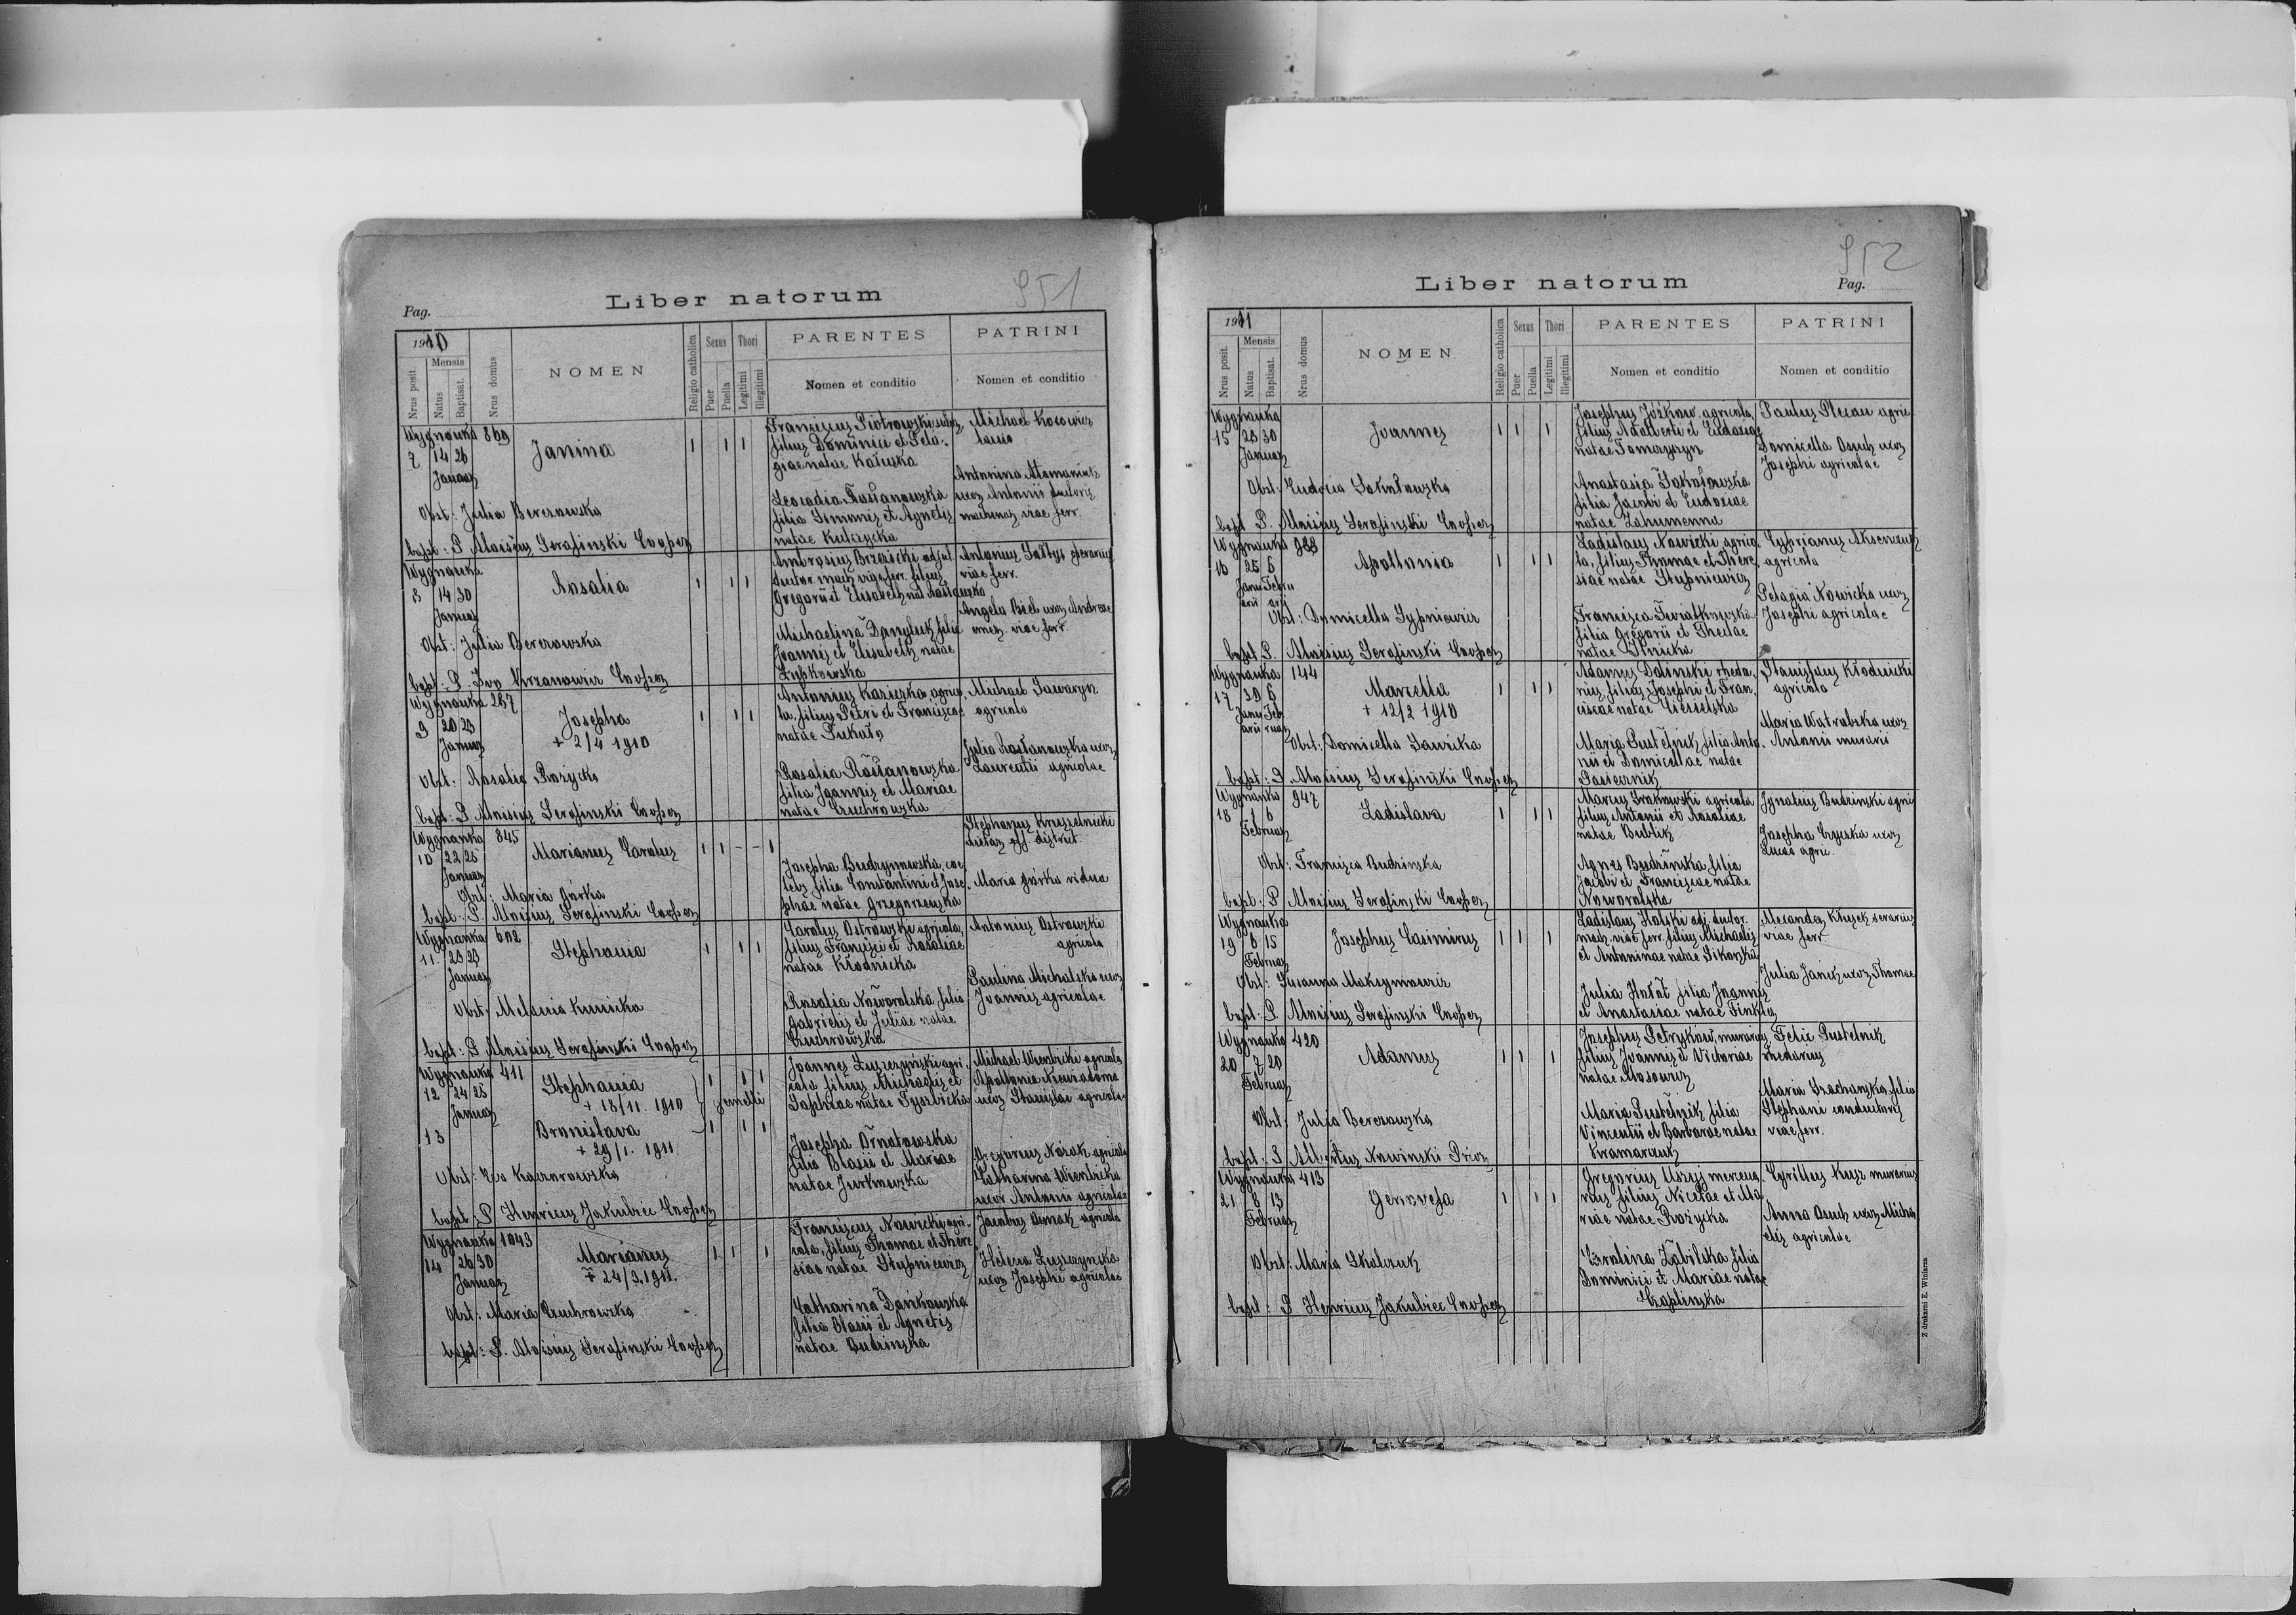 951
Liber natorum
Pag.
1910
Nrus posit.
Mensis
Natus
Baptisat.
Nrus domus
NOMEN
Religio catholica
Sexus
Puer
Puella
Thori
Legitimi
Illegitimi
PARENTES
Nomen et conditio
PATRINI
Nomen et conditio
Wygnanka 869
7 14 26
Januar
Janina
1 1 1
Franciscus Piotrowski
filius Dominici et Pela-
giae natae Kałuska
Leocadia Rostanowska
filia Simonis et Agnetis
natae Kulczycka
Michael
Antonina
uxor Antonii
machinar viae ferr.
Obst: Julia Berezowska
bapt: P. Aloisius Serafinski Cooper
Wygnanka
8 14 30
Januar
Rosalia
1 1 1
Ambrosius Brzezicki adjut.
mach. viae ferr. filius
Gregorii et Elisabeth nat
Michaelina Danyluk filia
Joannis et Elisabeth natae
Zybkowska
Antonius
viae ferr.
Angela Biel uxor Andreae
viae ferr.
Obst: Julia Berezowska
bapt: P. Ivo Cooper
Wygnanka 267
9 20 23
Januar
Josepha
+ 2/4 1910
1 1 1
Antonius agrico-
la, filius Petri et Franciscae
natae
Rosalia Rostanowska
filia Joannis et Mariae
natae Czuchrowska
Michael Jawaryn
agricola
Julia Rostanowska uxor
Laurentii agricolae
Obst: Rosalia Rożycka
bapt: P. Aloisius Serafinski Cooper
Wygnanka 845
10 22 25
Januar
Marianus Carolus
1 1 - - 1
Josepha Budzynowska, coe
lebs filia Constantini et Jose-
phae natae Grzegorzewska
Stephanus Kruszelnicki
off. district.
Maria Górka vidua
Obst: Maria Górka
bapt: P. Aloisius Serafinski Cooper
Wygnanka 602
11. 23 23
Januar
Stephania
1 1 1
Carolus Ostrowski agricola,
filius Francisci et Rosaliae
natae Kłodnicka
Rosalia Noworolska filia
Gabrielis et Juliae natae
Czuchrowska
Antonius Ostrowski
agricola
Paulina Michalska uxor
Joannis agricolae
Obst: Melania Kunicka
bapt: P. Aloisius Serafinski Cooper
Wygnanka 411
12 24 25
Januar
Stephania
+ 18/11. 1910
gemelli
1 1 1
13
Bronislava
+ 29/1. 1911
1 1 1
Joannes Łuszczyński agri-
cola filius Michaelis et
Sophiae natae
Josepha Ornatowska
filia Blasii et Mariae
natae Jurkowska
Michael Wierzbicki agricola
Apollonia Niewiadoma
uxor Stanislai agricolae
Gregorius Nosak agricola
Catharina Wierzbicka
uxor Antonii agricolae
Obst: Eva Kaczorowska
bapt: P. Henricus Jakubiec Cooper
Wygnanka 1043
14 26 30
Januar
Marianus
+ 24/3. 1911.
1 1 1
Franciscus Nowicki agri-
cola, filius Thomae et There
siae natae Stupniewicz
Catharina Dankowska
filia Blasii et Agnetis
natae Budzinska
Jacobus agricola
Helena Łuszczynska
uxor Josephi agricolae
Obst: Maria Czuchrowska
bapt: P. Aloisius Serafinski Cooper
952
Liber natorum
Pag.
1911
Nrus posit.
Mensis
Natus
Baptisat.
Nrus domus
NOMEN
Religio catholica
Sexus
Puer
Puella
Thori
Legitimi
Illegitimi
PARENTES
Nomen et conditio
PATRINI
Nomen et conditio
Wygnanka
15 28 30
Januar
Joannes
1 1 1
Josephus Jóźkow, agricola,
filius Adalberti et Eudoxiae
natae Tomczyszyn
Anastasia Sokołowska
filia Jacobi et Eudoxiae
natae Zahumenna
Paulus Plecan agric
Domicella Osuch uxor
Josephi agricolae
Obst: Eudocia Sokołowska
bapt P. Aloisius Serafinski Cooper
Wygnanka 988
16 25 6
Janu Febru
arii arii
Apollonia
1 1 1
Ladislaus Nowicki agrico
la, filius Thomae et There
siae natae Stupniewicz
Francisca Kwiatkowska
filia Gregorii et Theclae
natae Ilnicka
Cyprianus Aksenczuk
agricola
Pelagia Nowicka uxor
Josephi agricolae
Obst: Domicella Sypniewicz
bapt P. Aloisius Serafinski Cooper
Wygnanka 144
17 29 6
Janu Feb
arii ruar
Marcella
+ 12/2 1910
1 1 1
Adamus Dolinski rheda-
rius, filius Josephi et Fran-
ciscae natae Ciesielska
Maria Pustelnik filia Anto-
nii et Domicellae natae
Pasiecznik
Stanislaus Kłodnicki
agricola
Maria Watrobska uxor
Antonii murarii
Obst: Domicella Sawicka
bapt: P. Aloisius Serafinski Cooper
Wygnanka 947
18 1 6
Februar
Ladislava
1 1 1
Marcus Krakowski agricola
filius Antonii et Rosaliae
natae Bublik
Agnes Budzinska filia
Jacobi et Franciscae natae
Noworolska
Ignatius Budzinski agric
Josepha Czycka uxor
Lucae agric.
Obst: Francisca Budzinska
bapt: P Aloisius Serafinski Cooper
Wygnanka
19 6 15
Februar
Josephus Casimirus
1 1 1
Ladislaus Halski adj.
mach. viae ferr. filius Michaelis
et Antoninae natae Sikorska
Julia Hałat filia Joannis
et Anastasiae natae Finkler
Alexander Kłysek
viae ferr.
Julia Janik uxor Thomae
Obst: Susanna Maksymowicz
bapt: P. Aloisius Serafinski Cooper
Wygnanka 420
20 7 20
Februar
Adamus
1 1 1
Josephus Petryków, murarius
filius Joannis et Victoriae
natae Mosowicz
Maria Pustelnik filia
Vincentii et Barbarae natae
Kramarczuk
Felix Pustelnik
rhedarius
Maria Grochowska, filia
Stephani conductoris
viae ferr.
Obst: Julia Berezowska
bapt: P. Albertus Nowinski Prior
Wygnanka 413
21 8 13
Februar
Genovefa
1 1 1
Gregorius Uszyj mercena-
rius filius Nicetae et Ma
riae natae Rożycka
Carolina Zabilska filia
Dominici et Mariae natae
Czaplinska
Cyrillus Kusz murarius
Anna Osuch uxor Micha
elis agricolae
Obst: Maria Skalczuk
bapt: P. Henricus Jakubiec Cooper
Z drukarni E. Winiarza